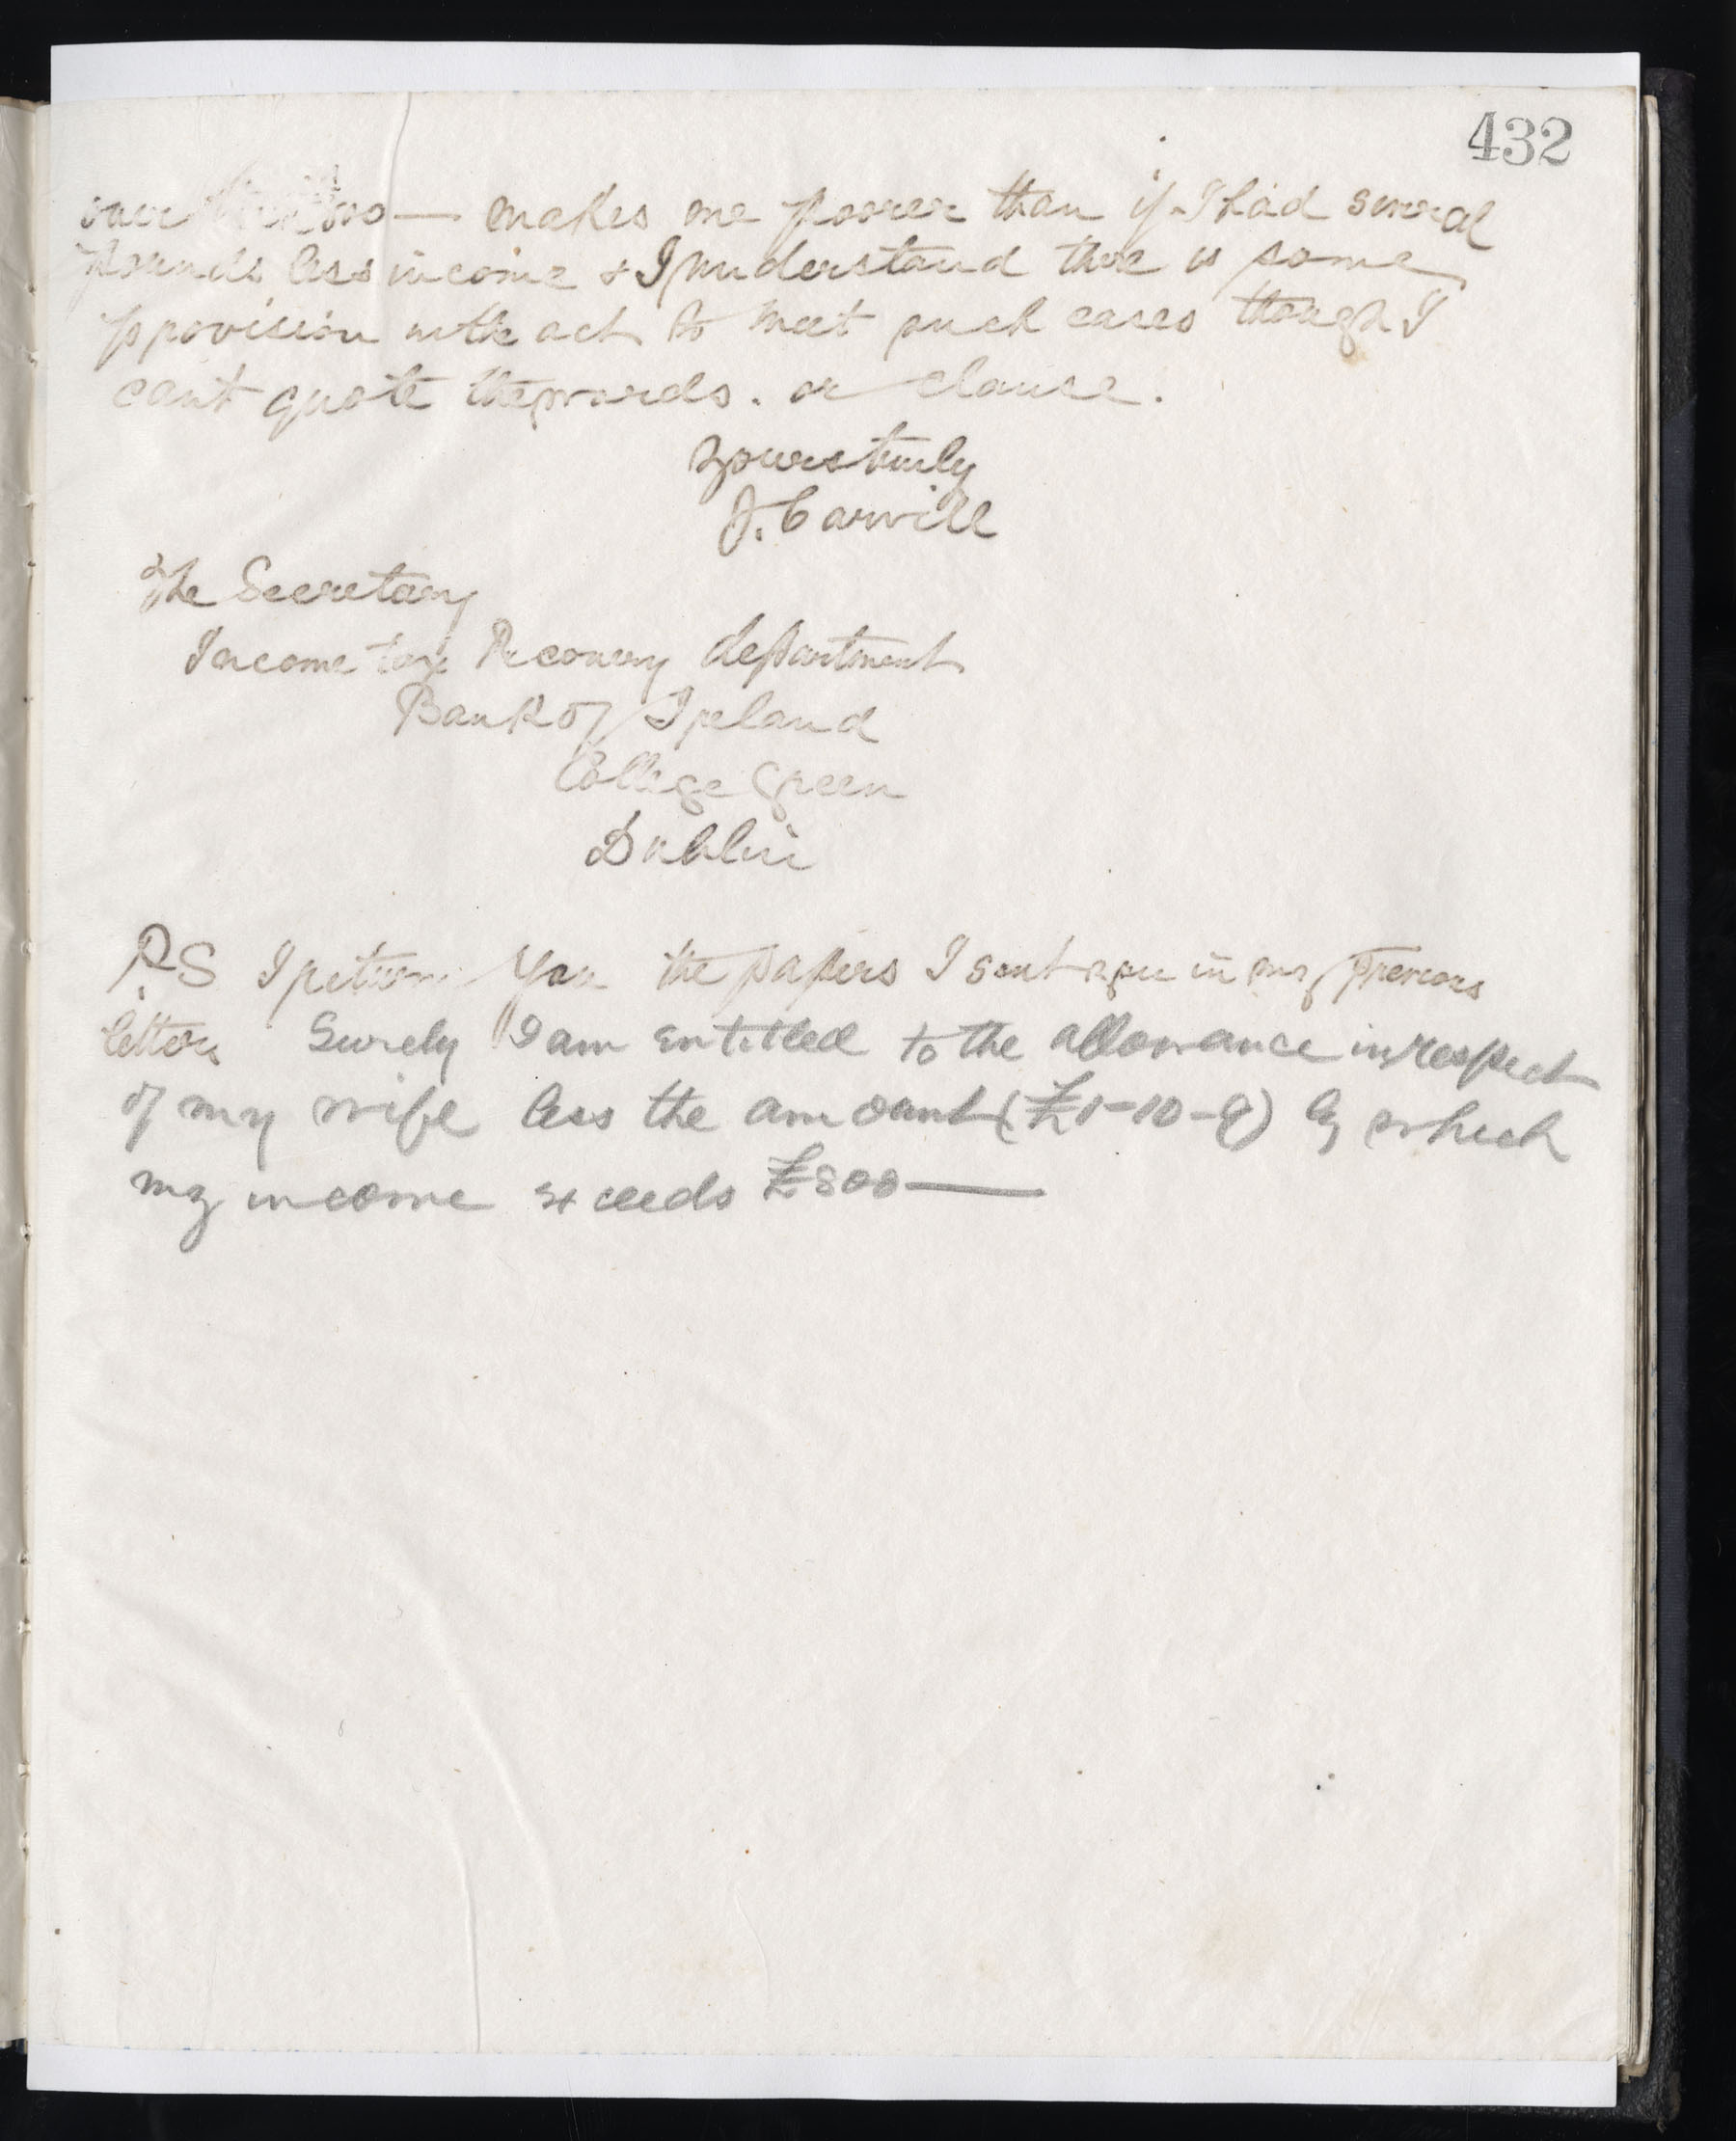 432
over makes me poorer than if I had several
pounds less income & I understand there is some
provision in the act to meet such cases though I
cant quote the words. or clause.
Yours truly
J. Carvill
The Secretary
Income tax Recovery department
Bank of Ireland
College Green
Dublin
P.S I return you the papers I sent you in my previous
letter Surely I am entitled to the allowance in respect
of my wife less the amount (£1-10-9) by which
my income exceeds £800—